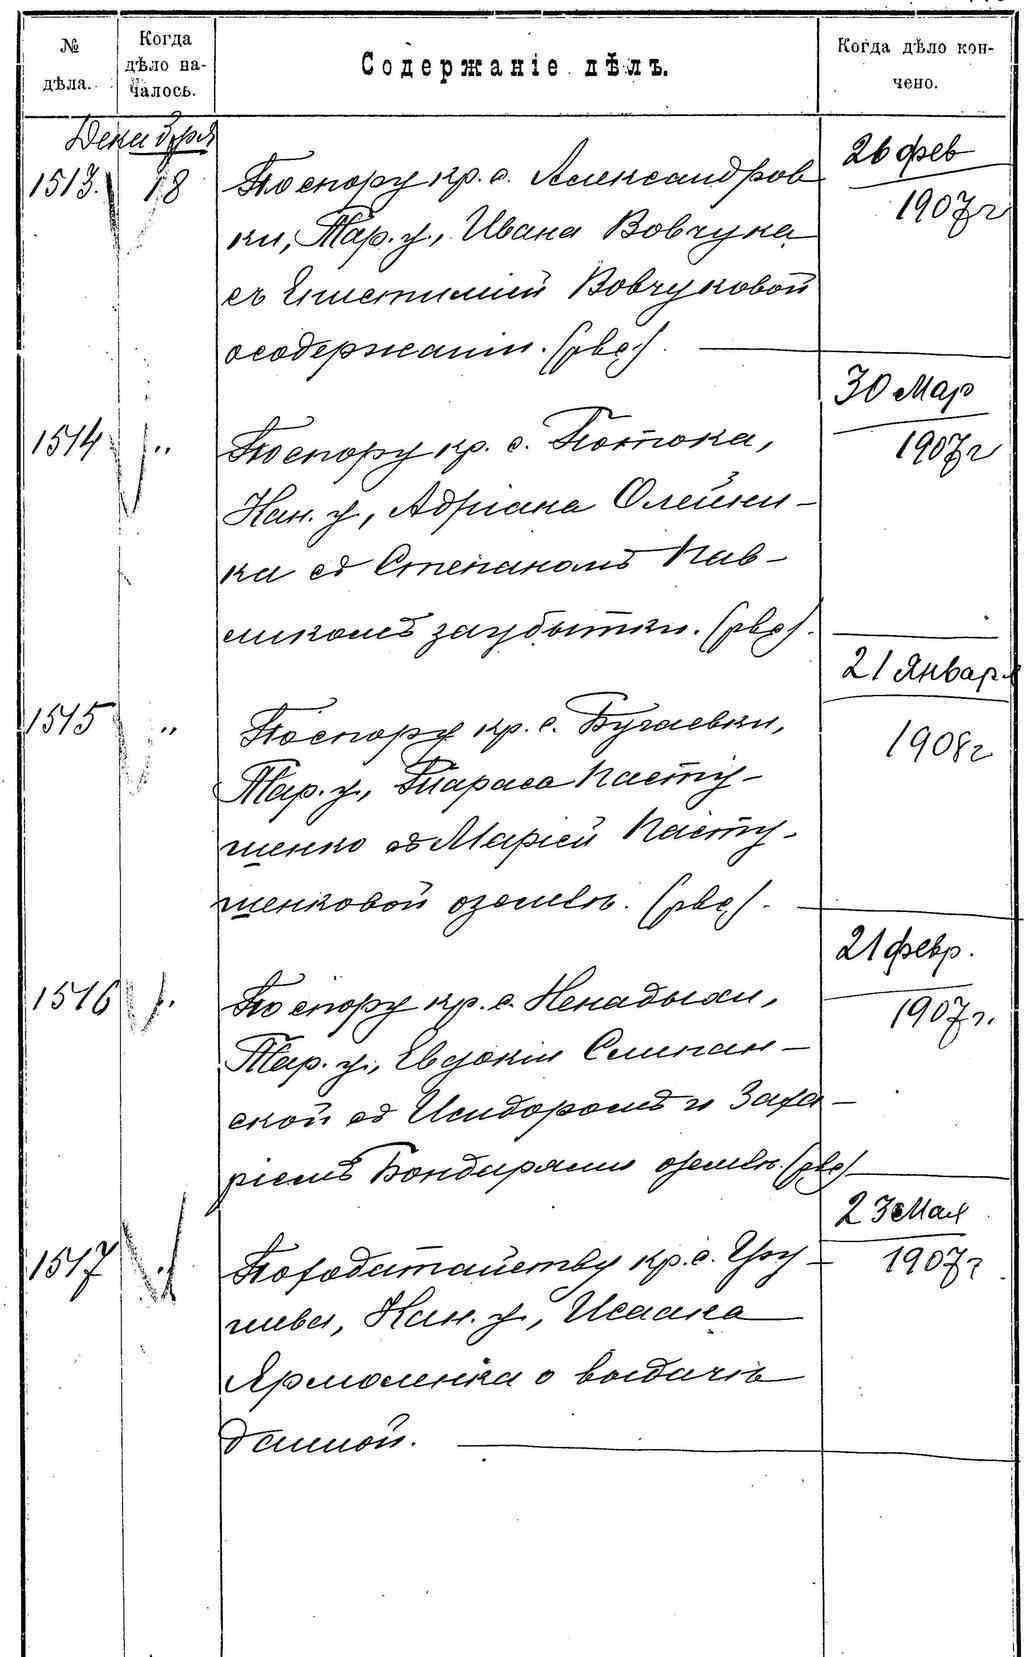 № дѣла.
Когда дѣло на-
чалось.
Содержаніе дѣлъ.
Когда дѣло кон-
чено.
Декабря
1513. 18 По спору кр. с. Александров
ки, Тар. у., Ивана Вовчука
съ Епистиміей Вовчуковой
о содержаніи. (рве.)
26 фев
1907 г
1514 " По спору кр. с. Потока,
Кан. у., Адріана Олейни-
ка съ Степаномъ Пав-
ликомъ за убытки. (рве).
30 Мар
1907 г
1515 " По спору кр. с. Бугаевки,
Тар. у., Тараса Пасту-
шенко съ Маріей Пасту-
шенковой о землѣ. (рве).
21 Января
1908 г
1516 " По спору кр. с. Ненадыхи,
Тар. у., Евдокіи Слипан-
ской съ Исидоромъ и Заха-
ріемъ Бондарями о землѣ. (рве)
21 февр.
1907 г.
1517 " По ходатайству кр. с.
Кан. у., Исаака
Ярмоленка о выдачѣ
данной.
23 Мая
1907 г